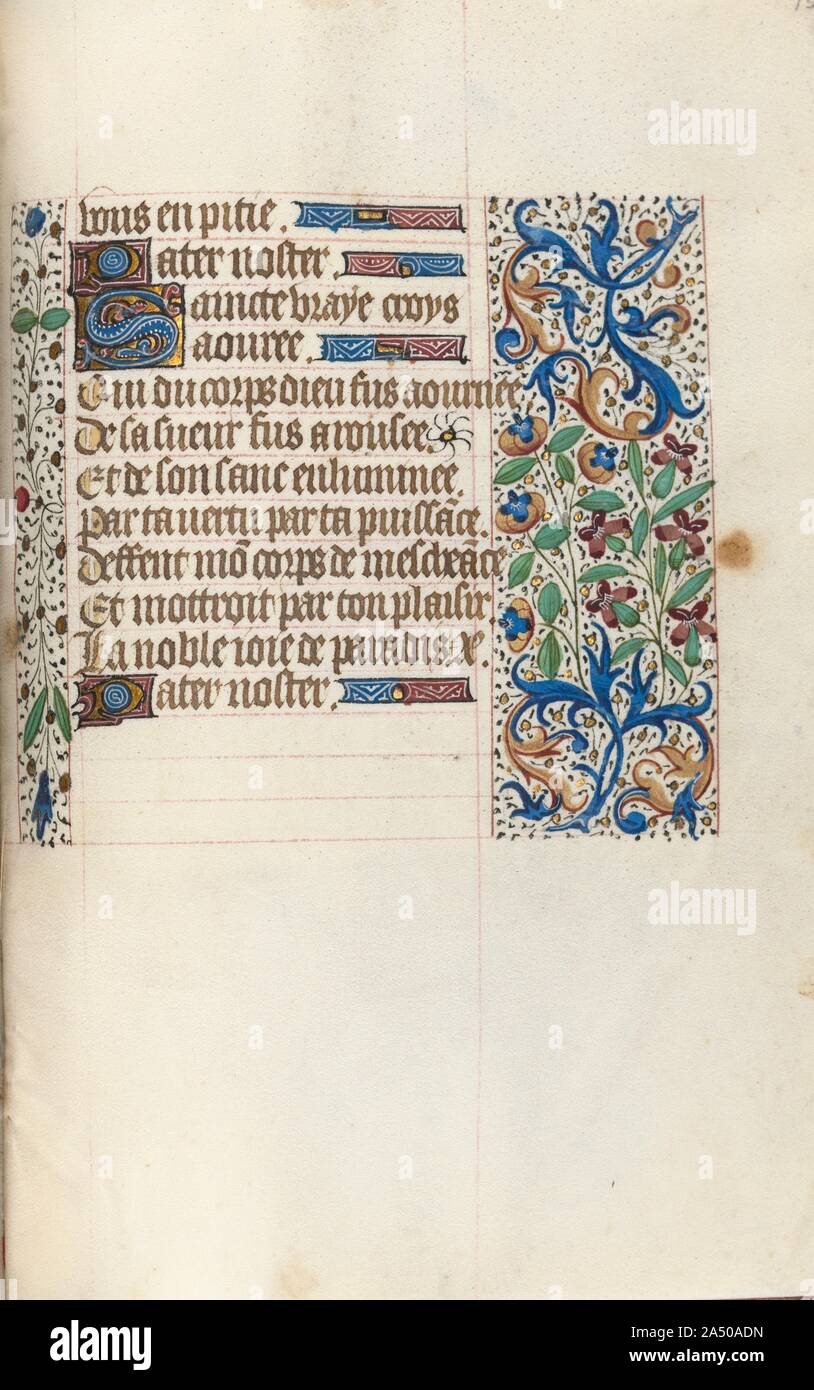 vous en pitie.
Pater noster.
Saincte vraye croys
aouree.
Qui du corps dieu fus aournee
De sa sueur fus arousee.
Et de son sanc enluminee.
Par ta vertu par ta puissãce.
Deffent mõ corps de meschãce
Et mottroit par ton plaisir.
La noble ioie de paradis. Xe.
Pater noster.
alamy
alamy
alamy
alamy
Image ID: 2A50ADN
www.alamy.com